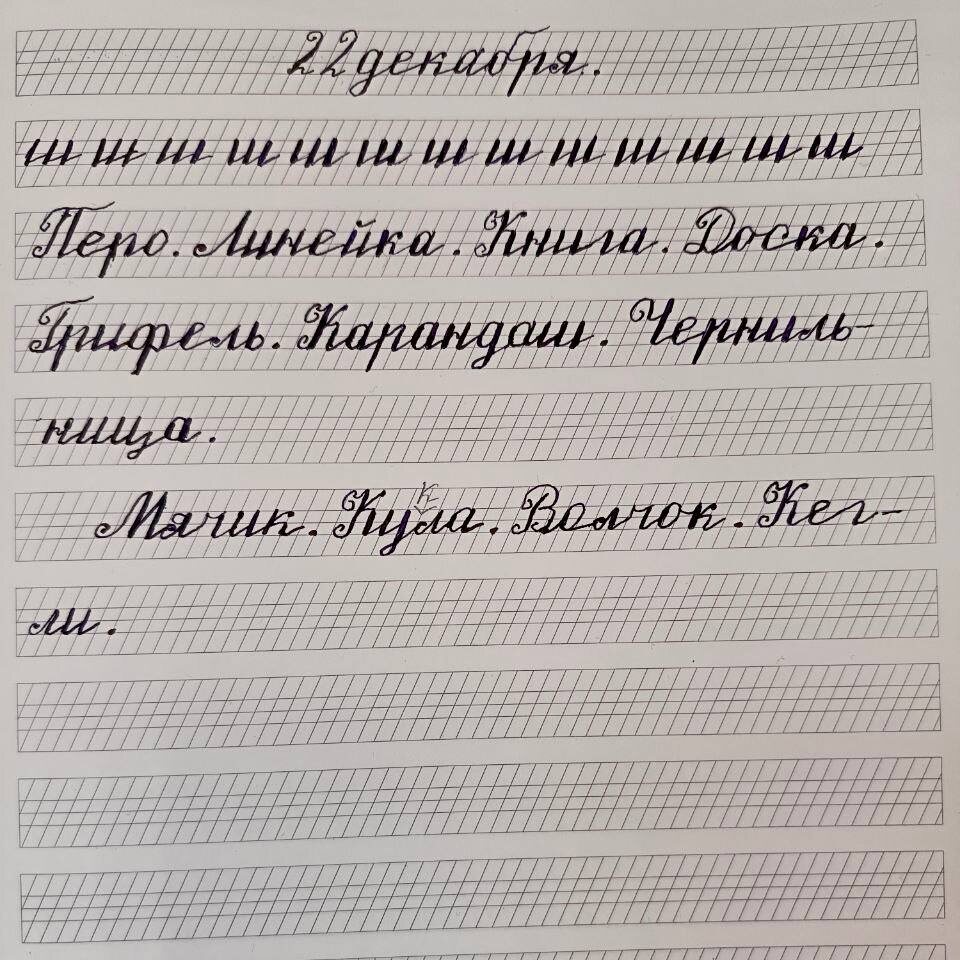 22 декабря.
ш ш ш ш ш ш ш ш ш ш ш ш ш
Перо. Линейка. Книга. Доска.
Грифель. Карандаш. Черниль-
ница.
Мячик. Кукла. Волчок. Кег-
ли.